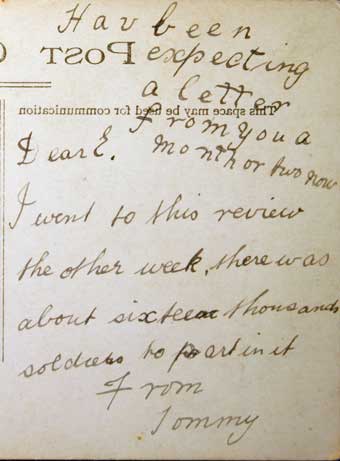 Hav been
POST C
expecting
a letter
This space may be used for communication
From you a
Dear E. Month or two now
I went to this review
the other week, there was
about sixteen thousands
soldiers to part in it
From
Tommy